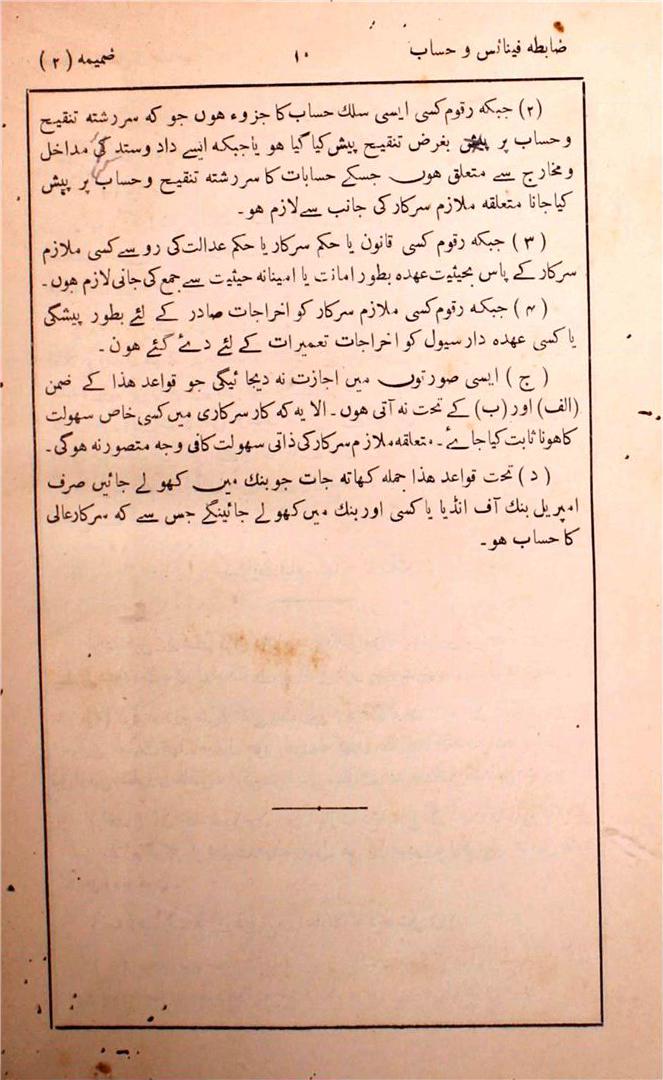 ضابطہ فینانس و حساب
۱۰
ضمیمہ (۲)
(۲) جبکہ رقوم کسی ایسی سلك حساب کا جزوء ہوں جو کہ سررشتہ تنقیح
و حساب پر بغرض تنقیح پیش کیا گیا ہو یا جبکہ ایسے داد وستد کی مداخل
و مخارج سے متعلق ہوں جسکے حسابات کا سررشتہ تنقیح و حساب پر پیش
کیا جانا متعلقہ ملازم سرکار کی جانب سے لازم ہو۔
(۳) جبکہ رقوم کسی قانون یا حکم سرکار یا حکم عدالت کی رو سے کسی ملازم
سرکار کے پاس بحیثیت عہدہ بطور امانت یا امینانہ حیثیت سے جمع کی جانی لازم ہوں۔
(۴) جبکہ رقوم کسی ملازم سرکار کو اخراجات صادر کے لئے بطور پیشگی
یا کسی عہدہ دار سیول کو اخراجات تعمیرات کے لئے دۓ گئے ہون۔
(ج) ایسی صورتوں میں اجازت نہ دیجائیگی جو قواعد ھذا کے ضمن
(الف) اور (ب) کے تحت نہ آتی ہوں۔ الا یہ کہ کار سرکاری میں کسی خاص سہولت
کا ہونا ثابت کیا جاۓ۔ متعلقہ ملازم سرکار کی ذاتی سہولت کافی وجہ متصور نہ ہوگی۔
(د) تحت قواعد ھذا جملہ کھاتہ جات جو بنك میں کھولے جائیں صرف
امپریل بنك آف انڈیا یا کسی اور بنك میں کھولے جائینگے جس سے کہ سرکارعالی
کا حساب ہو۔